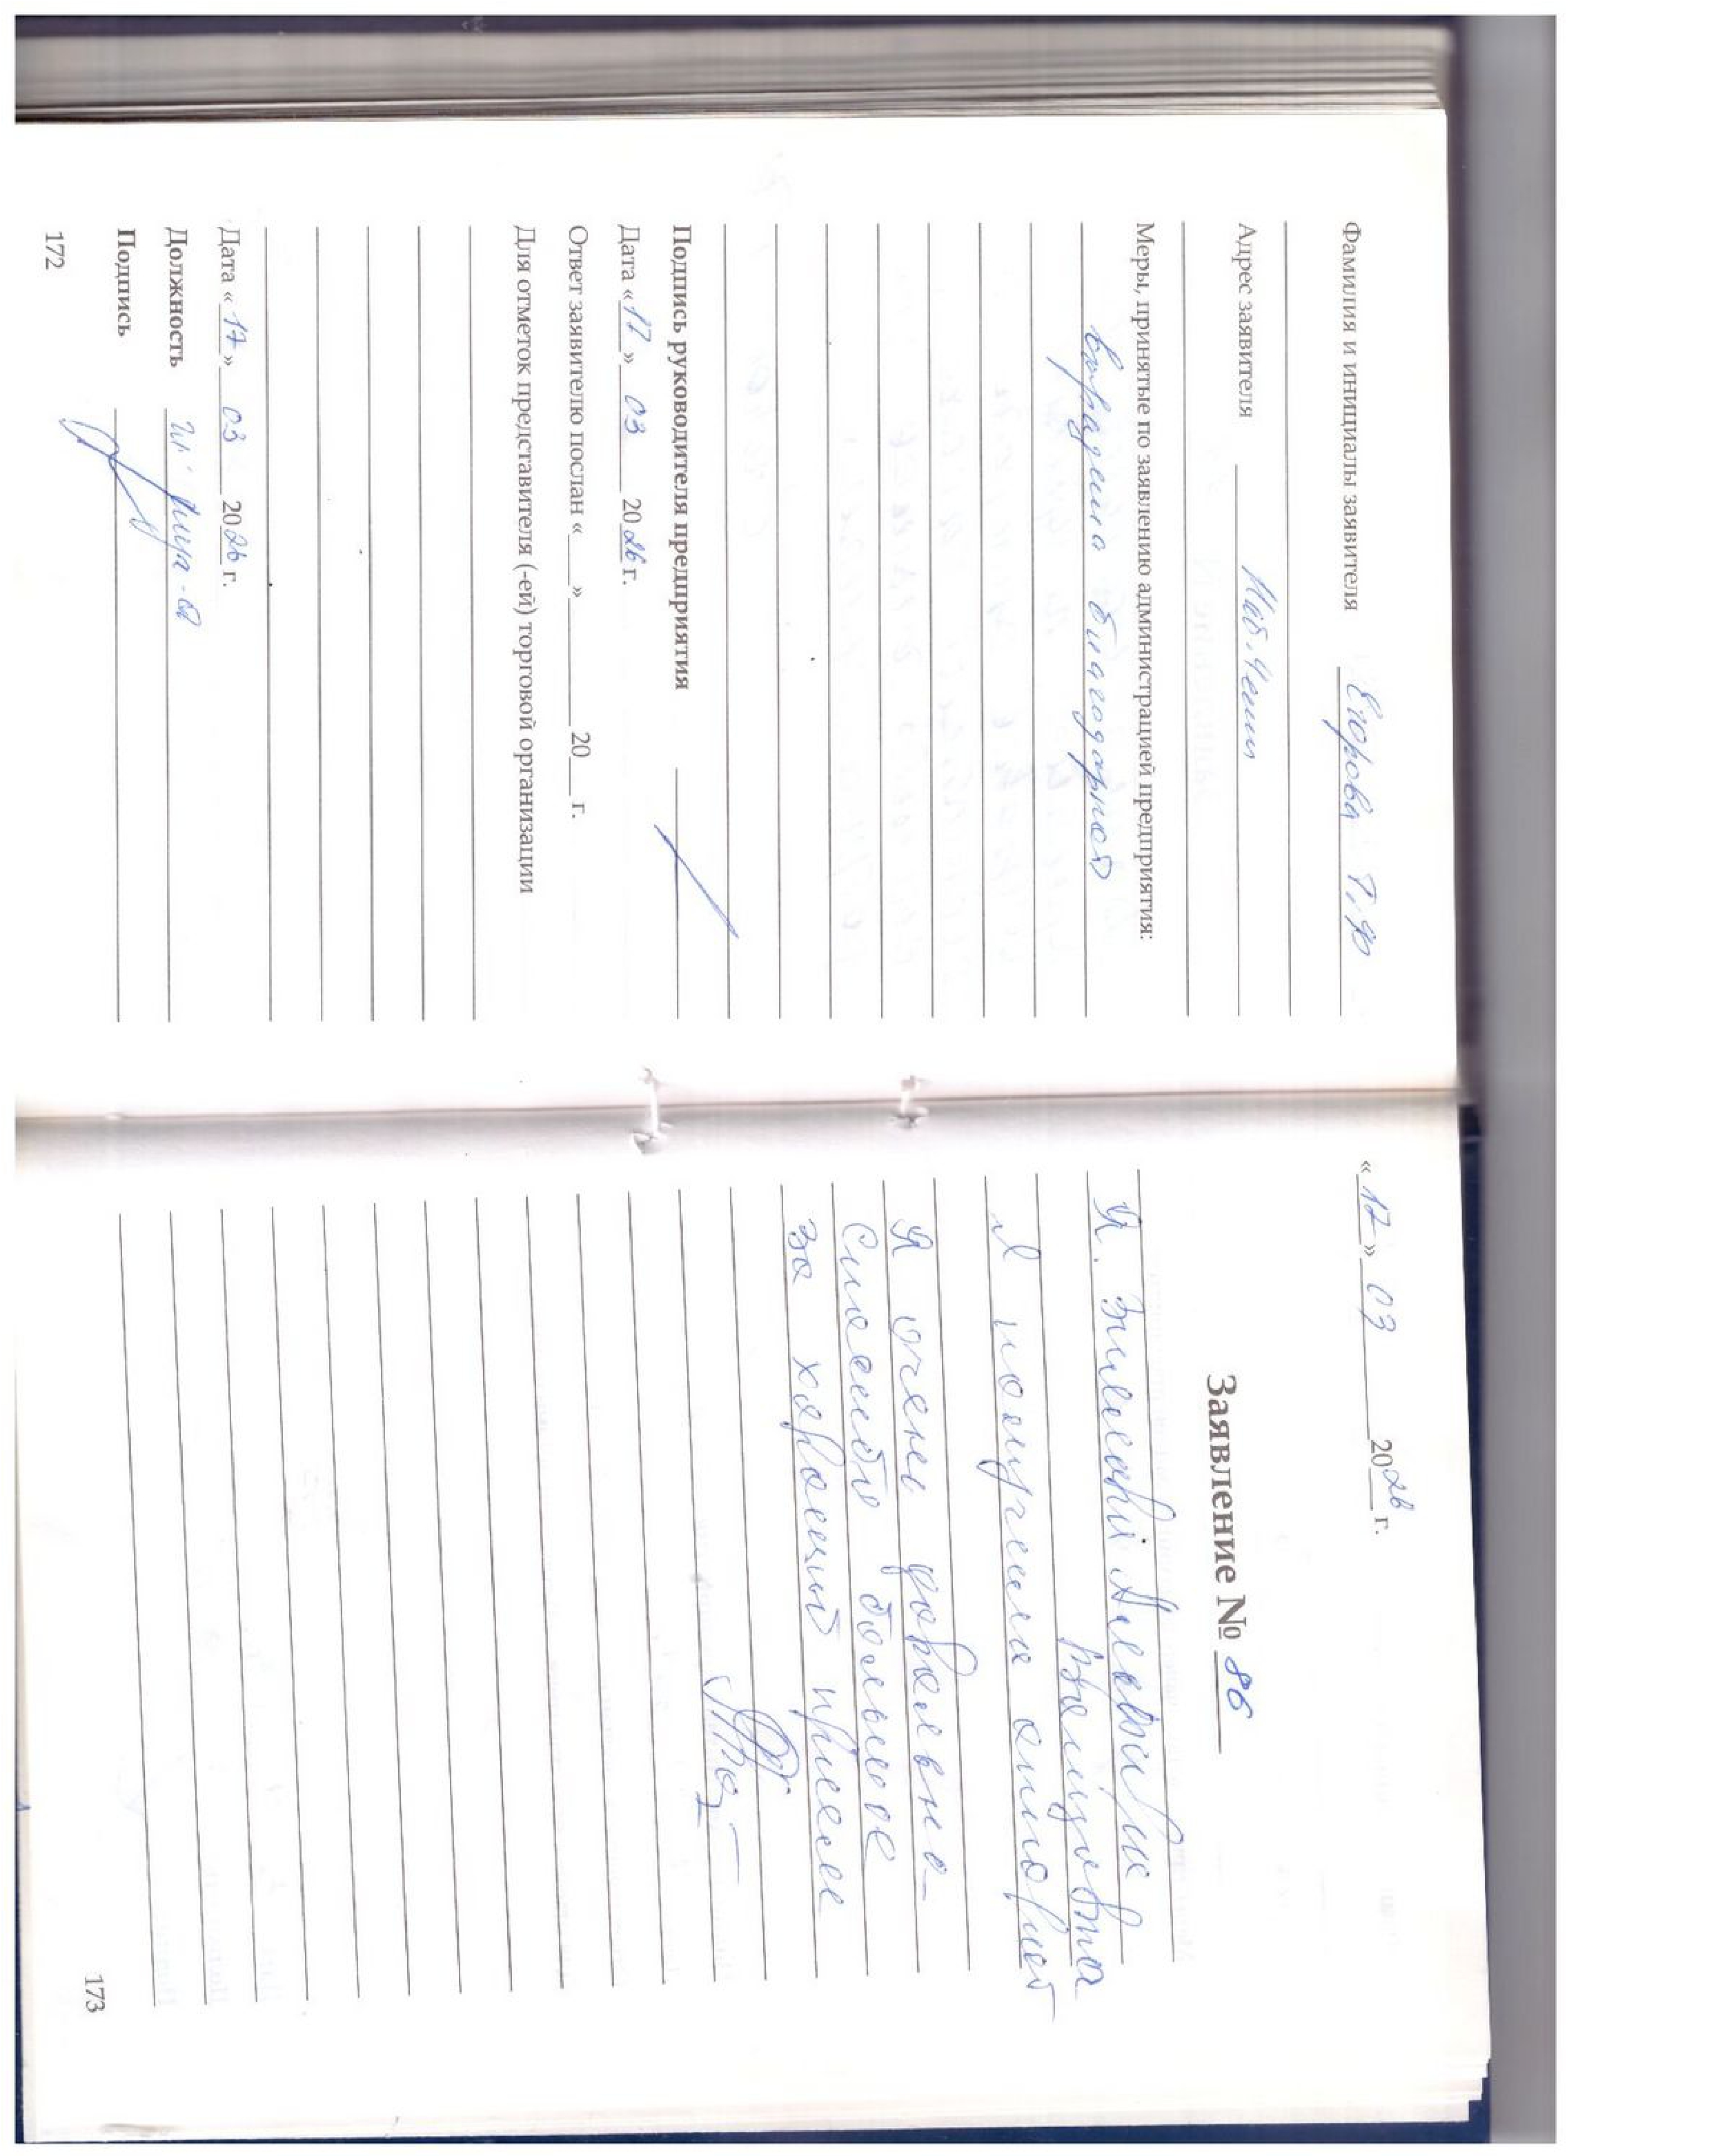 Фамилия и инициалы заявителя Егорова Т. Ю
Адрес заявителя Наб. Челны
Меры, принятые по заявлению администрацией предприятия:
выражена благодарност
Подпись руководителя предприятия
Дата «17» 03 2026 г.
Ответ заявителю послан «___» ______ 20___ г.
Для отметок представителя (-ей) торговой организации
Дата «17» 03 2026 г.
Должность
Подпись
172
«17» 03 2026 г.
Заявление № 86
Я.
Я получила
Я очень довольна
Спасибо большое
за хороший прием
173